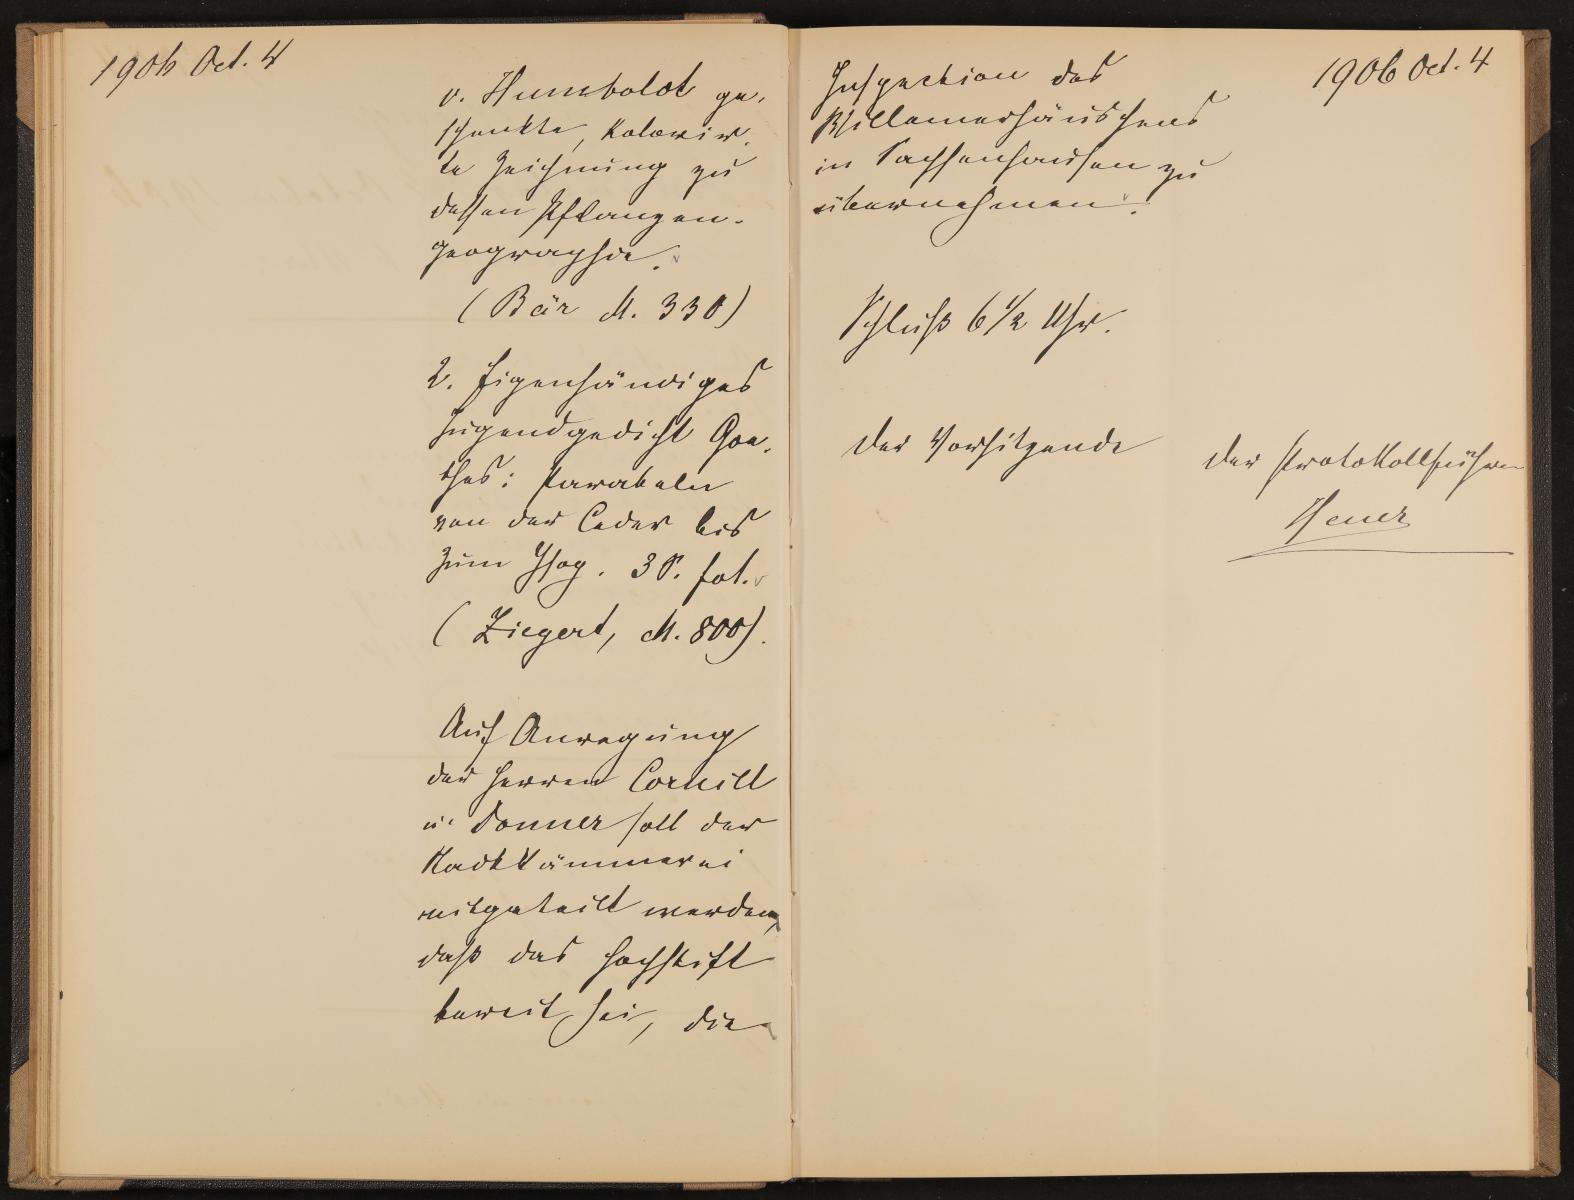 1906 Oct. 4
v. Humboldt ge-
schenkte, kolorir-
te Zeichnung zu
dessen Pflanzen-
geographie.
(Bär M. 330)
2. Eigenhändiges
Jugendgedicht Goe-
thes: Parabeln
von der Ceder bis
zum Ysop. 3 S. fol.
(Ziegert, M. 800).
Auf Anregung
der Herren Cornill
u. Donner soll der
Stadtkämmerei
mitgeteilt werden,
daß das Hochstift
bereit sei, die
1906 Oct. 4
Inspection des
Willemerhäuschens
in Sachsenhausen zu
übernehmen.
Schluß 6 1/2 Uhr.
Der Vorsitzende
Der Protokollführer
Heuer